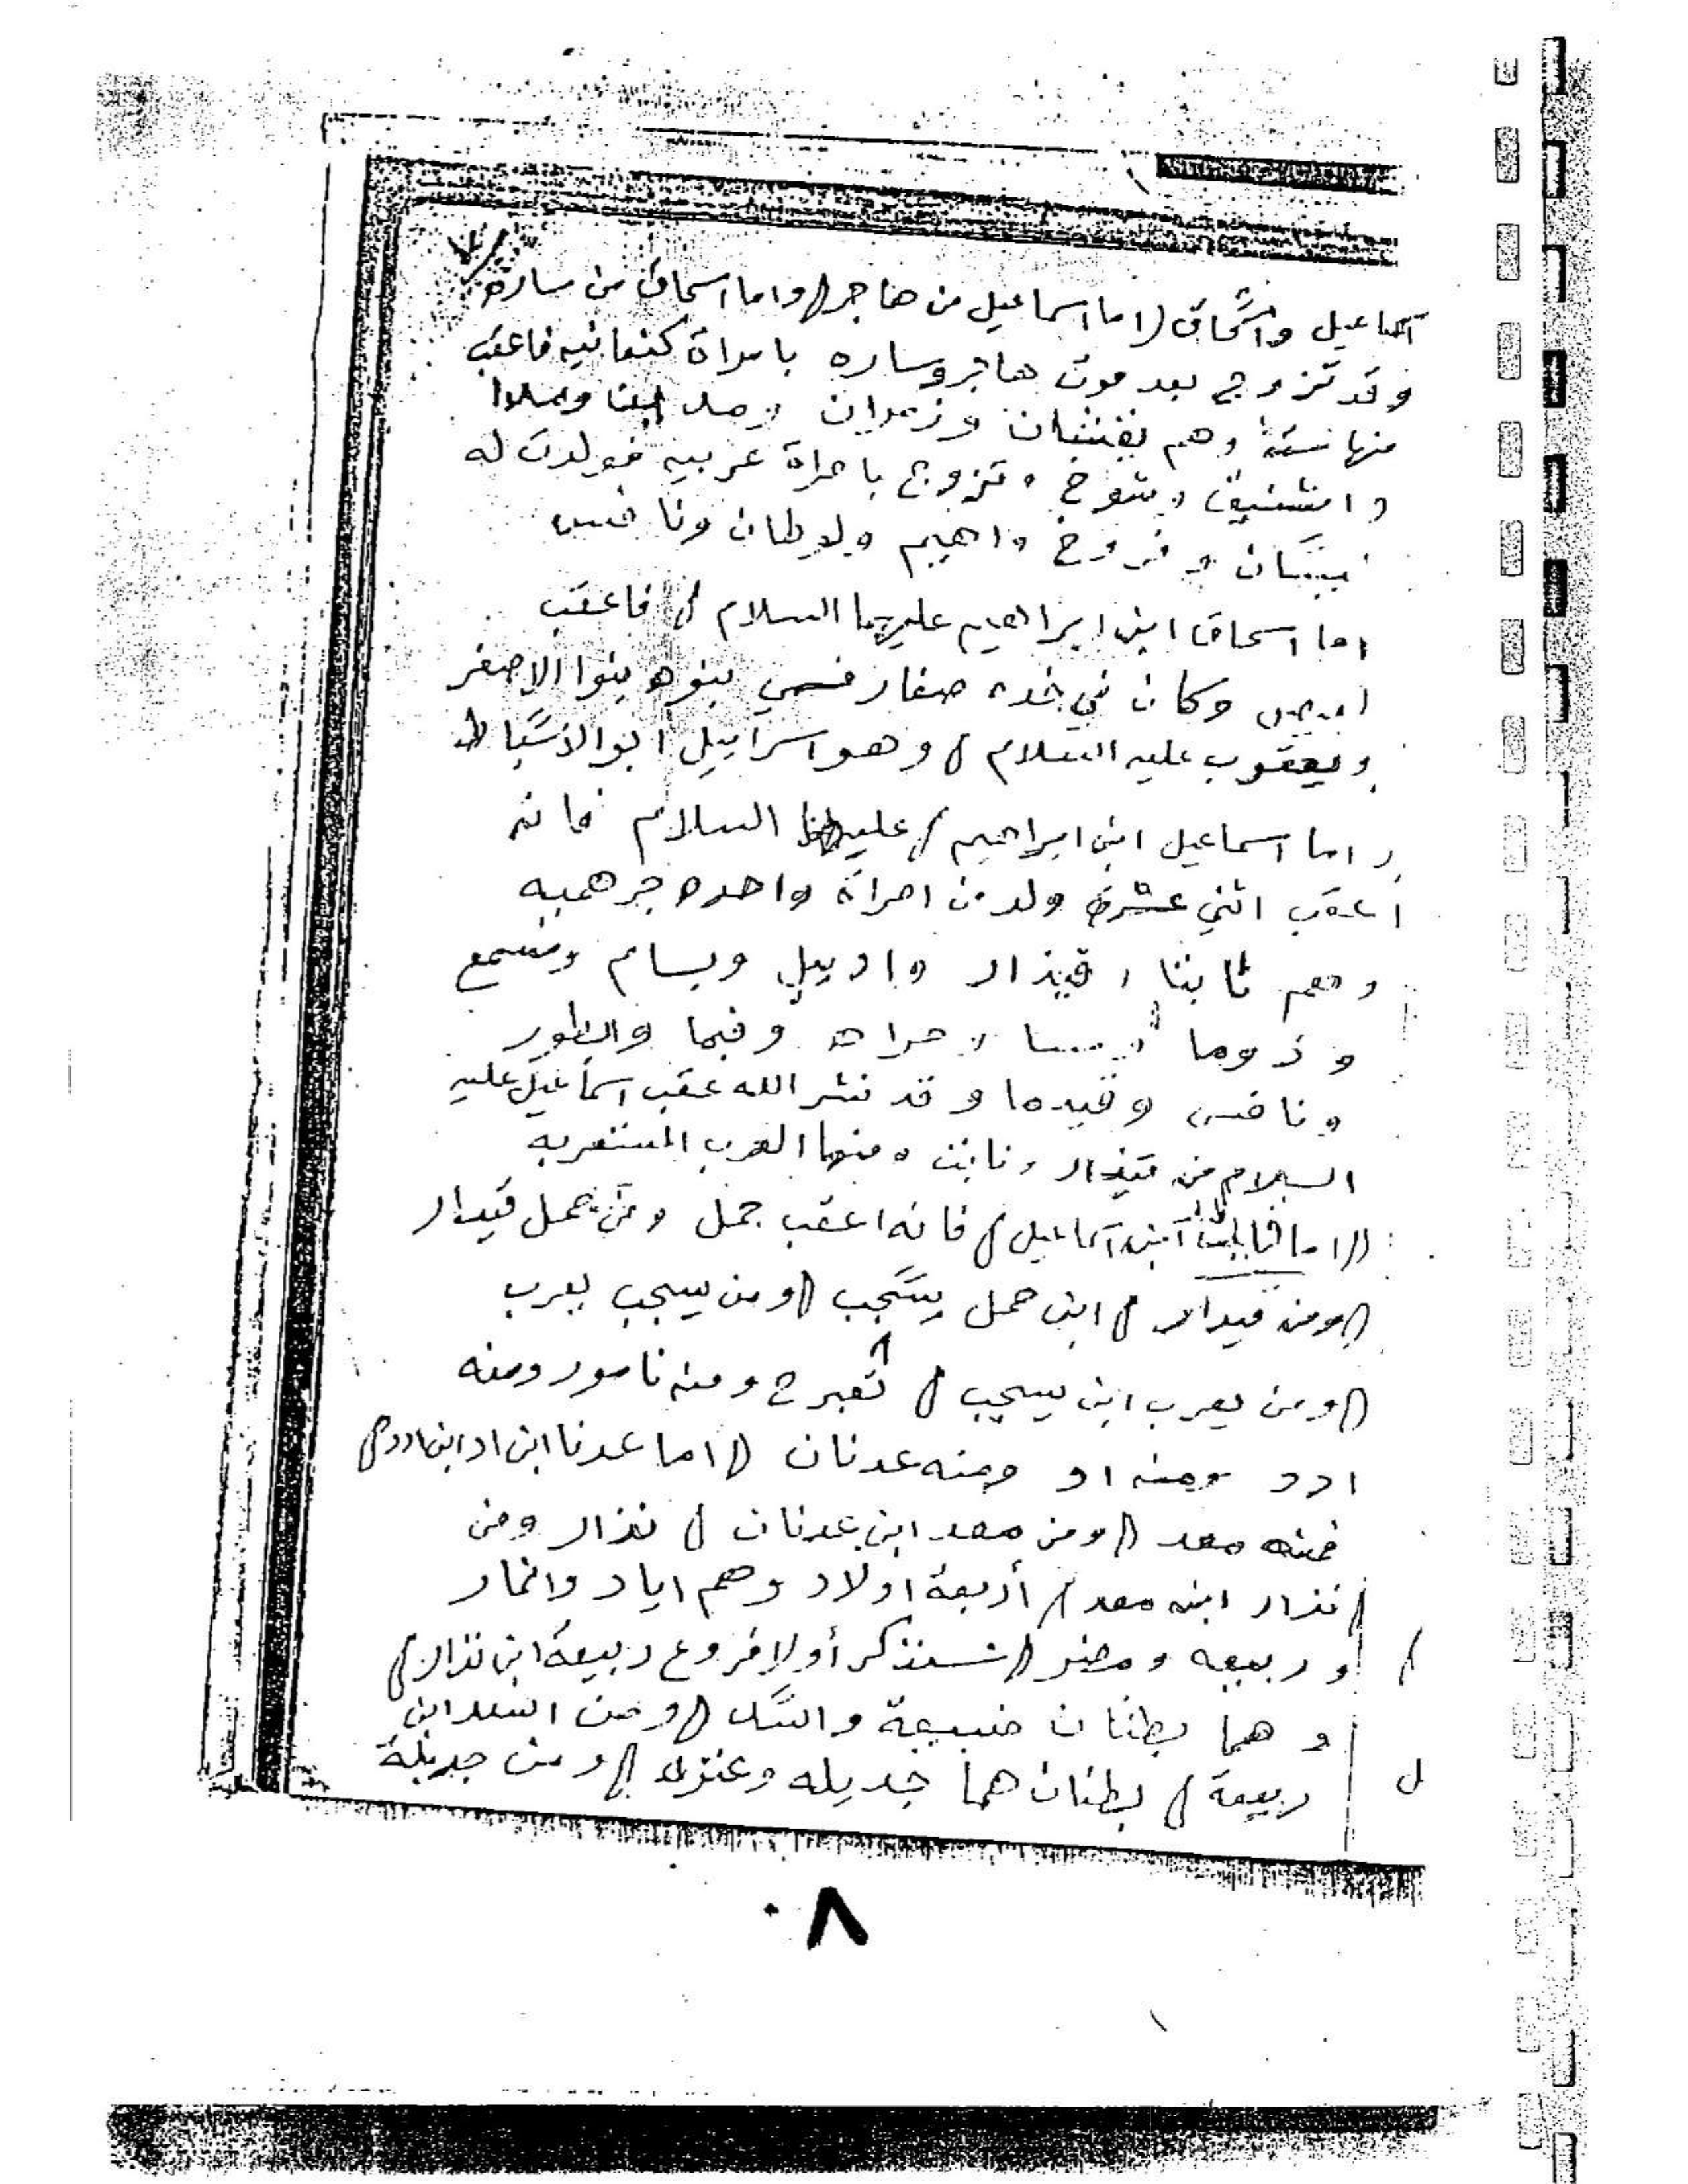 اسماعيل واسحاق (اما اسماعيل من هاجر) واما اسحاق من ساره
وقد تزوج بعد موت هاجر وساره بامراة كنعانيه فاعقب
منها ستة وهم يقشان وزمران
وتزوج بامراة عربيه فولدت له
وفروخ واهيم ولوطان ونافس
اما اسحاق ابن ابراهيم عليهما السلام / فاعقب
وكان في خده صفار فسمي بنوه بنوا الاصفر
ويعقوب عليه السلام / وهو اسراييل ابو الاسباط
واما اسماعيل ابن ابراهيم / عليهما السلام فانه
اعقب اثني عشرة ولد من امراة واحده جرهميه
وهم ثابتا وقيذار وادبيل وبسام ومسمع
وذوما وفيما والطور
ونافس وقيدما وقد نشر الله عقب اسماعيل عليه
السلام من قيذار ونابت ومنها العرب المستعربه
(اما ابن اسماعيل / فانه اعقب حمل ومن حمل قيدار
(ومن قيدار / ابن حمل يسجب (ومن يسجب يعرب
(ومن يعرب ابن يسجب / ومنه نامور ومنه
ادد ومنه اد ومنه عدنان (اما عدنا ابن اد ابن ادد/
فمنه معد (ومن معد ابن عدنان / نذار ومن
/ نذار ابنه معد / أربعة اولاد وهم اياد وانمار
وربيعه ومضر (سنذكر أولا فروع ربيعة ابن نذار/
وهما بطنان ضبيعة واسد (ومن اسد ابن
ربيعة / بطنان هما جديله وعنزه (ومن جديلة
٨